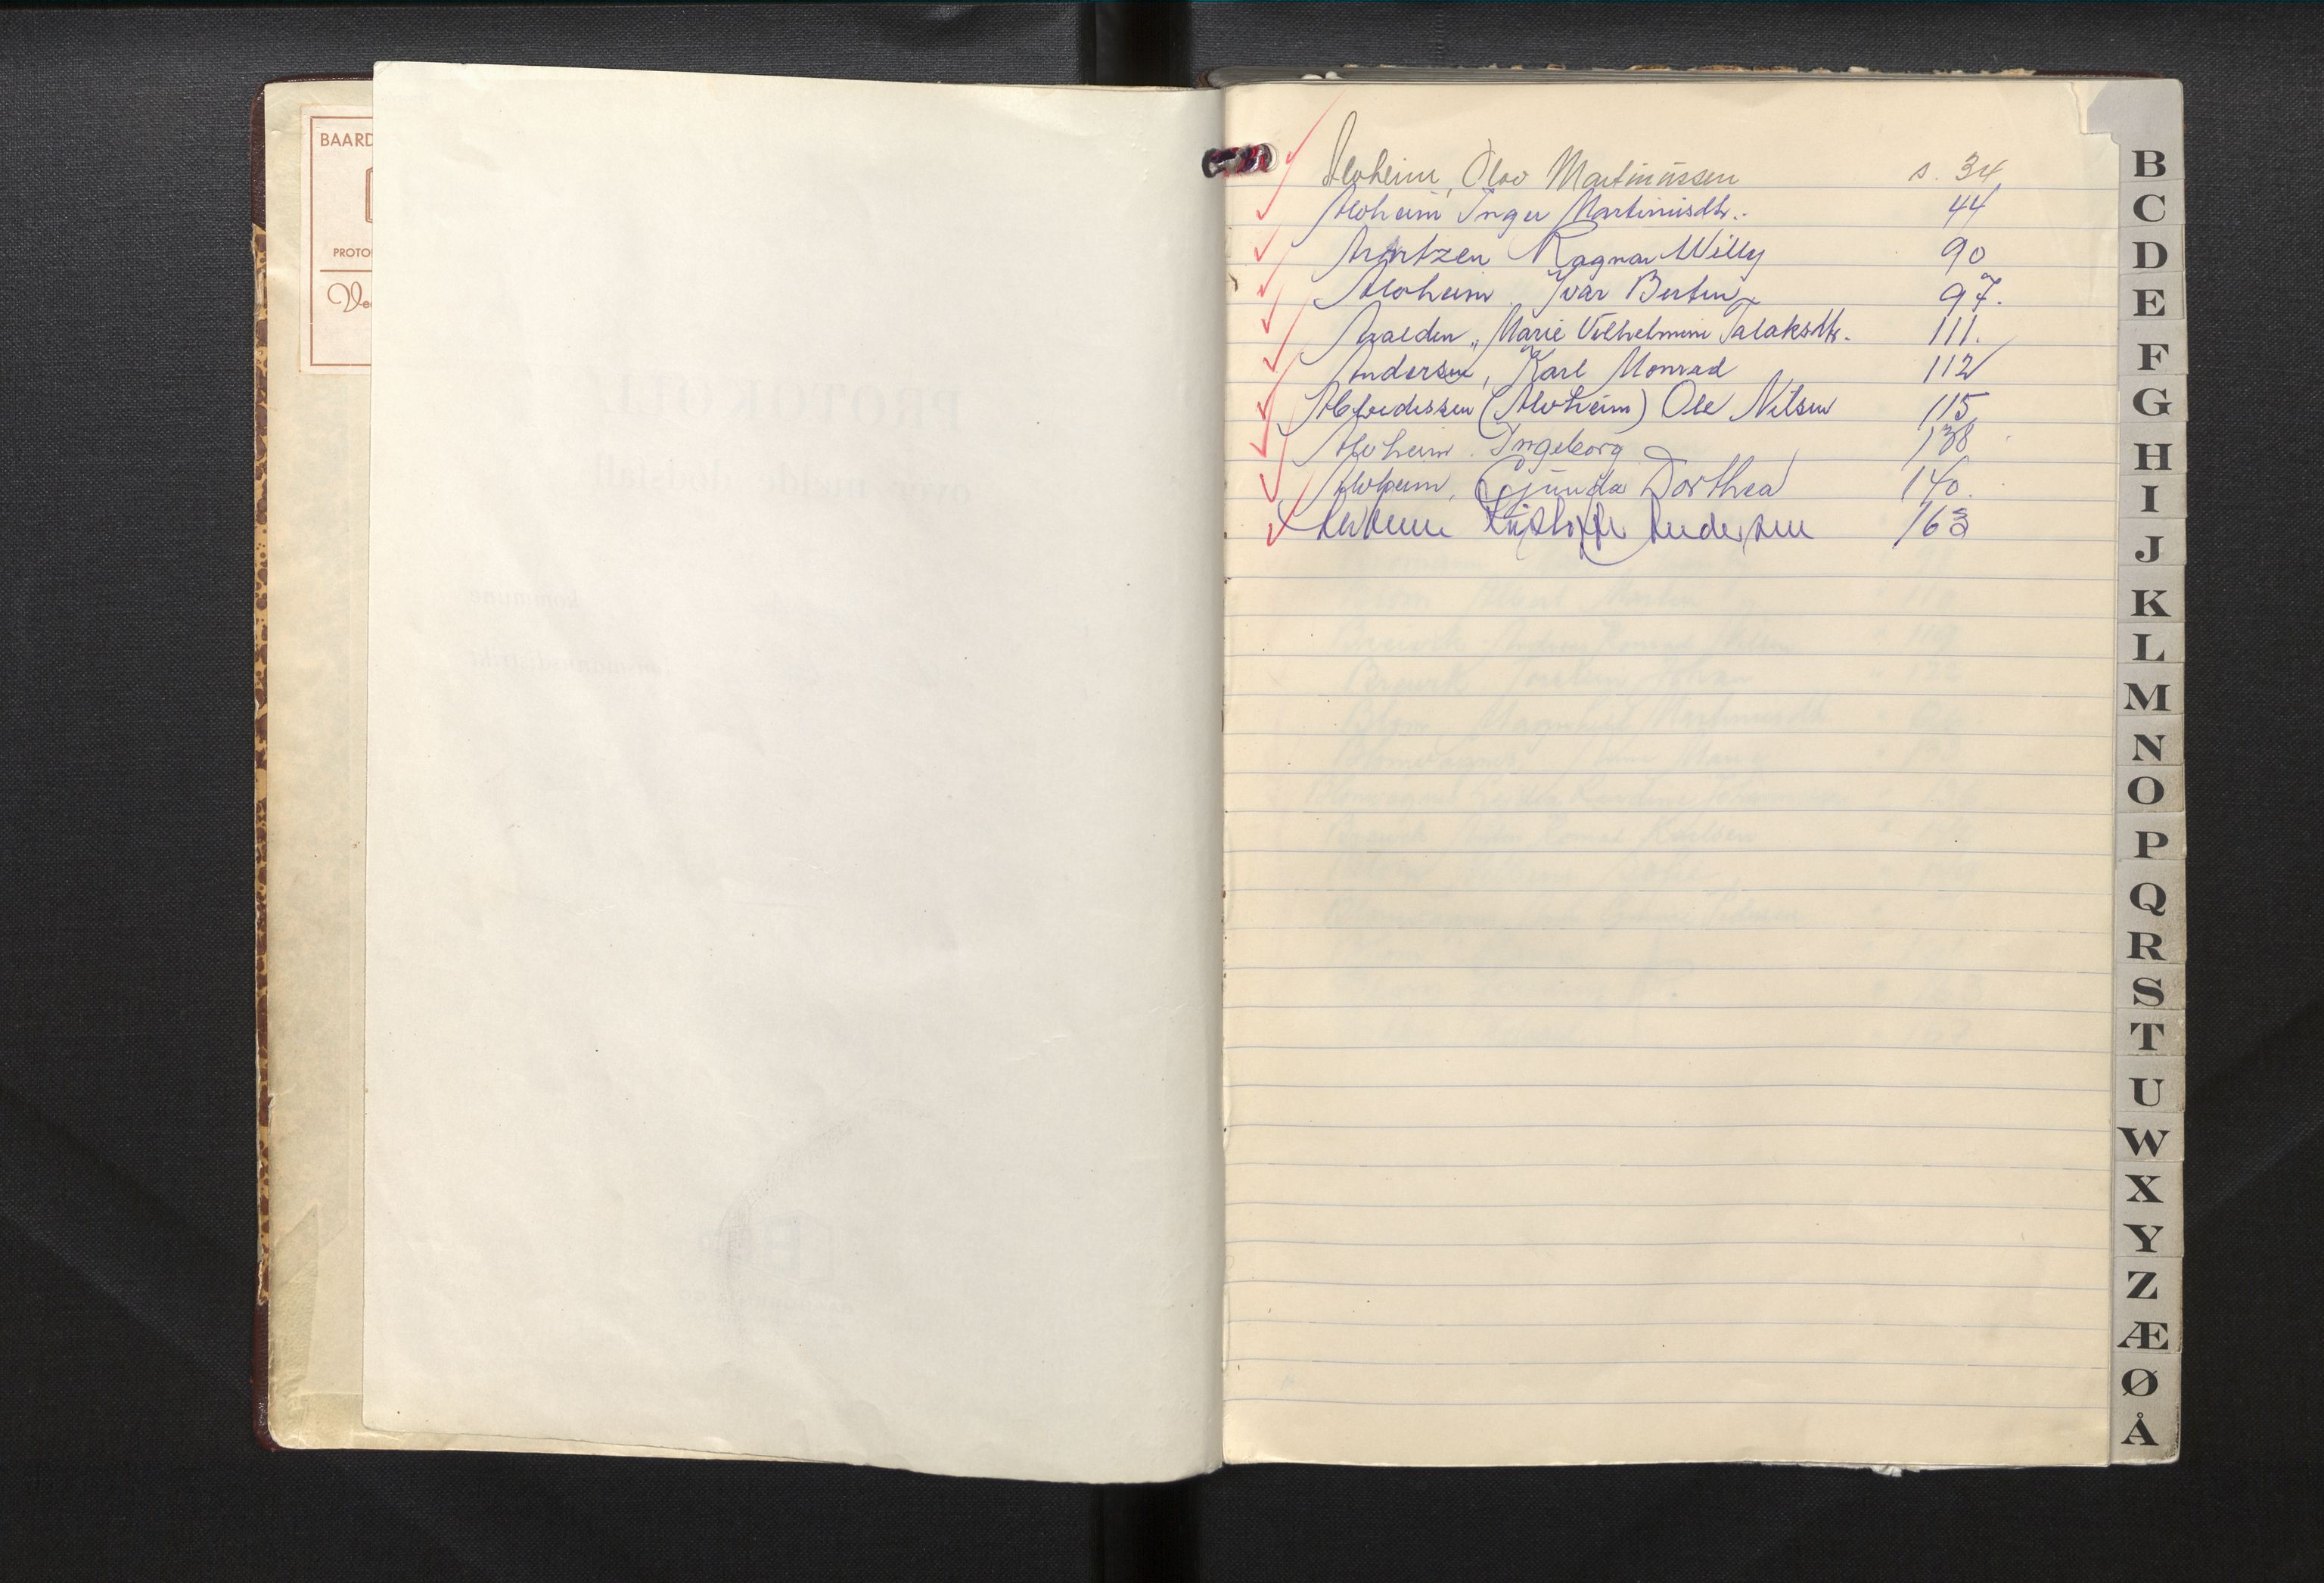 BAARD
PROTO
Ve
Alvheim, Olav Martinussen s. 34
Alvheim Inger Martinusdtr. 44
Arntzen Ragnar Willy 90
Alvheim Ivar Bertin 97.
Marie Vilhelmine Talaksdtr. 111.
Andersen, Karl Monrad 112
(Alvheim) Ole Nilsen 115
Alvheim Ingeborg 138
Alvheim, Gjunda Dorthea 140.
Kristoffer Andersen 163
B
C
D
E
F
G
H
I
J
K
L
M
N
O
P
Q
R
S
T
U
W
X
Y
Z
Æ
Ø
Å